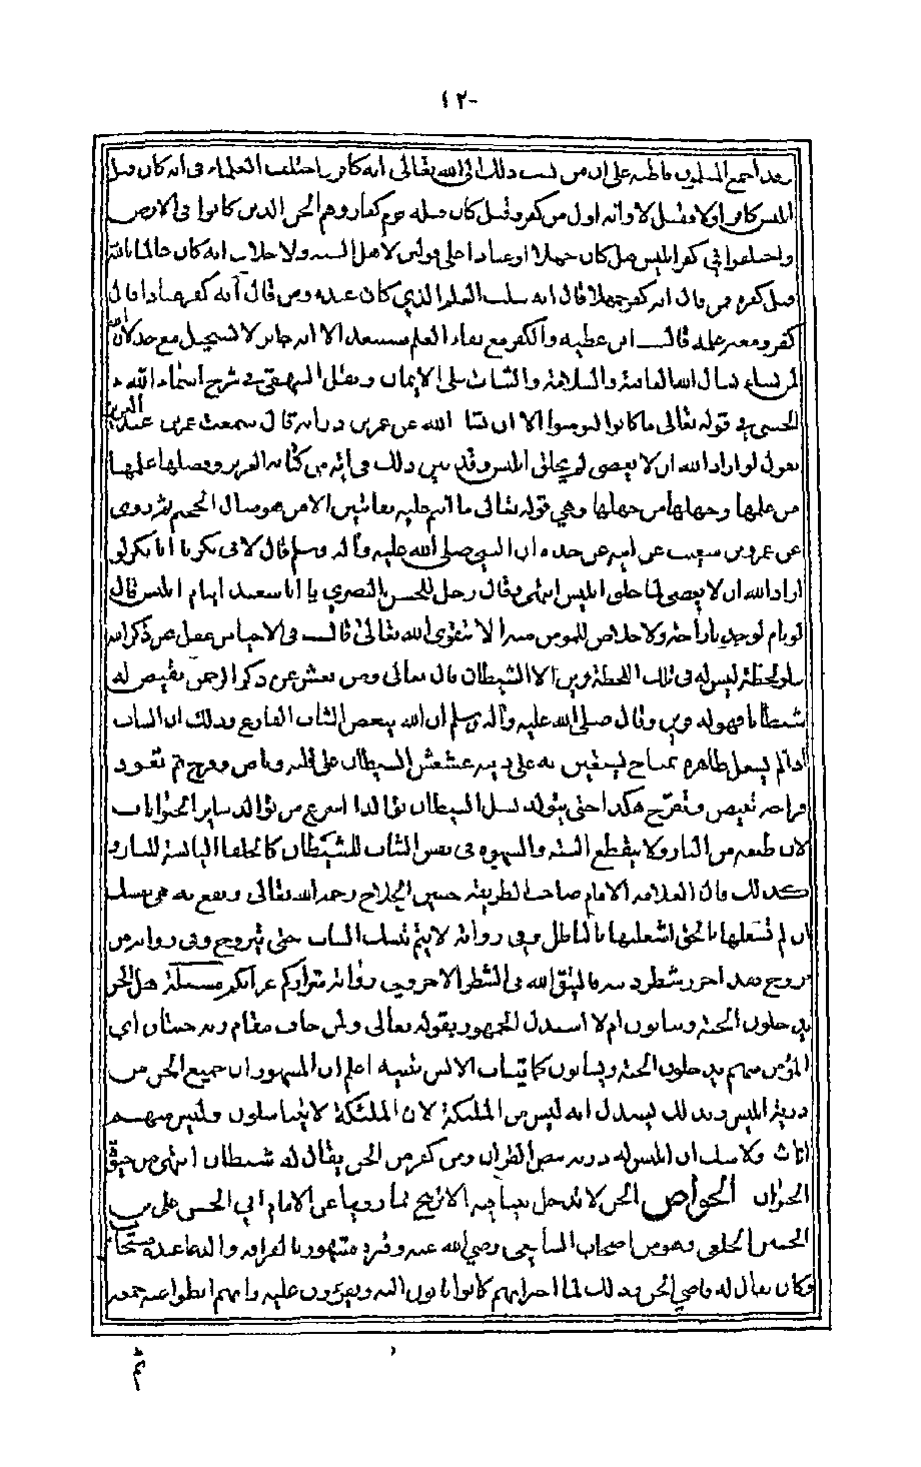 ١٢٠
فقد اجمع المسلمون قاطبة على ان من نسب ذلك الى الله تعالى انه كافر واختلف العلماء فى انه كان قبل
ابليس كافر اولا فقيل لا وانه اول من كفر وقيل كان قبله قوم كفار وهم الجن الذين كانوا فى الارض
واختلفوا فى كفر ابليس هل كان جهلا او عنادا على قولين لاهل السنة ولا خلاف انه كان عالما بالله
قبل كفره فمن قال انه كفر جهلا قال انه سلب العلم الذي كان عنده ومن قال انه كفر عنادا قال
كفر ومعه علمه قال ابن عطيه والكفر مع بقاء العلم مستبعد الا انه جائز لا يستحيل مع خذلان الله
لمن يشاء نسال الله العافية والسلامة والثبات على الايمان ونقل البيهقي فى شرح اسماء الله
الحسنى فى قوله تعالى ما كانوا ليومنوا الا ان يشا الله عن عمر بن ذر انه قال سمعت عمر بن عبد العزيز
يقول لو اراد الله ان لا يعصى لم يخلق ابليس وقد بين ذلك فى اية من كتابه العزيز وفصلها علمها
من علمها وجهلها من جهلها وهي قوله تعالى ما انتم عليه بفاتنين الا من هو صال الجحيم ثم روى
عن عمرو بن شعيب عن ابيه عن جده ان النبي صلى الله عليه وآله وسلم قال لابى بكر يا ابا بكر لو
اراد الله ان لا يعصى لما خلق ابليس انتهى وقال رجل للحسن البصري يا ابا سعيد اينام ابليس قال
لو ينام لوجدنا راحة ولا خلاص للمومن منه الا بتقوى الله تعالى قال فى الاحياء من غفل عن ذكر الله
ولو لحظة ليس له فى تلك اللحظة قرين الا الشيطان قال تعالى ومن يعش عن ذكر الرحمن نقيض له
شيطانا فهو له قرين وقال صلى الله عليه وآله وسلم ان الله يبغض الشاب الفارغ وذلك ان الشاب
اذا لم يشغل ظاهره بمباح يستعين به على دينه عشعش الشيطان على قلبه وباض وفرخ ثم تعود
فراخه تبيض وتفرخ هكذا حتى يتولد نسل الشيطان توالدا اسرع من توالد سائر الحيوانات
لان طبعه من النار ولا ينقطع البتة والشهوة فى نفس الشاب للشيطان كالحلفا اليابسة للنار و
كذلك قال العلامه الامام صاحب الطريقة حسين الحلاج رحمه الله تعالى ونفع به هي نفسك
ان لم تشغلها بالحق اشغلتها بالباطل وفى رواية لا يتم نسك الشاب حتى يتزوج وفى رواية من
تزوج فقد احرز شطر دينه فاليتق الله فى الشطر الاخر وفى رواية شراركم عزابكم مسئلة هل الجن
يدخلون الجنة ويثابون ام لا استدل الجمهور بقوله تعالى ولمن خاف مقام ربه جنتان اي
المؤمن منهم يدخلون الجنة ويثابون كما يثاب الانس تنبيه اعلم ان المشهور ان جميع الجن من
ذرية ابليس وبذلك يستدل انه ليس من الملئكة لان الملئكة لا يتناسلون وليس منهم
اناث ولا شك ان ابليس له ذرية بنص القران ومن كفر من الجن يقال له شيطان انتهى من حيوة
الحيوان الخواص الجن لا تدخل بيتا فيه الاترج لما روينا عن الامام ابي الحسن علي بن
الحسن الخلعى وهو من اصحاب الشافعى رضي الله عنه وقبره مشهور بالقرافة والدعا عنده مستجاب
وكان يقال له قاضي الجن وذلك لما اخبر انهم كانوا ياتون اليه ويقرؤن عليه وانهم ابطوا عنه جمعة